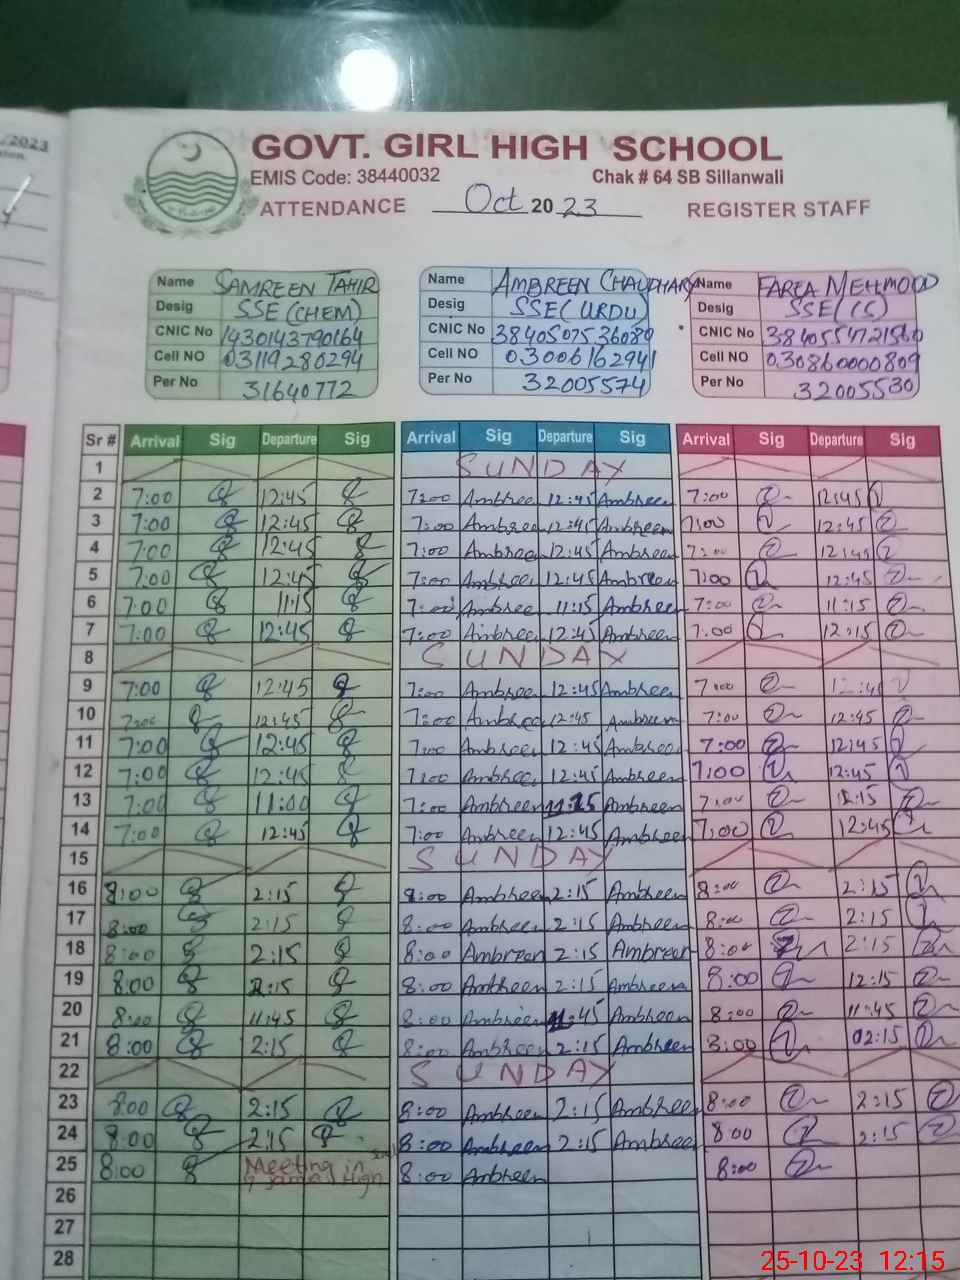 /2023
GOVT. GIRL HIGH SCHOOL
EMIS Code: 38440032 Chak # 64 SB Sillanwali
ATTENDANCE Oct 2023 REGISTER STAFF
Name SAMREEN TAHIR Name AMBREEN CHAUDHARY Name
Desig SSE (CHEM) Desig SSE (URDU) Desig SSE (CS)
CNIC No CNIC No CNIC No
Cell NO 03119280294 Cell NO 03006162941 Cell NO 03086000809
Per No 31640772 Per No 32005574 Per No 32005530
Sr # Arrival Sig Departure Sig Arrival Sig Departure Sig Arrival Sig Departure Sig
1 SUNDAY
2 7:00 12:45 7:00 Ambreen 12:45 Ambreen 7:00 12:45
3 7:00 12:45 7:00 Ambreen 12:45 Ambreen 7:00 12:45
4 7:00 12:45 7:00 Ambreen 12:45 Ambreen 7:00 12:45
5 7:00 12:45 7:00 Ambreen 12:45 Ambreen 7:00 12:45
6 7:00 11:15 7:00 Ambreen 11:15 Ambreen 7:00 11:15
7 7:00 12:45 7:00 Ambreen 12:45 Ambreen 7:00 12:15
8 SUNDAY
9 7:00 12:45 7:00 Ambreen 12:45 Ambreen 7:00 12:45
10 7:00 12:45 7:00 Ambreen 12:45 Ambreen 7:00 12:45
11 7:00 12:45 7:00 Ambreen 12:45 Ambreen 7:00 12:45
12 7:00 12:45 7:00 Ambreen 12:45 Ambreen 7:00 12:45
13 7:00 11:00 7:00 Ambreen 11:15 Ambreen 7:00
14 7:00 12:45 7:00 Ambreen 12:45 Ambreen 7:00 12:45
15 SUNDAY
16 8:00 2:15 8:00 Ambreen 2:15 Ambreen 8:00 2:15
17 8:00 2:15 8:00 Ambreen 2:15 Ambreen 8:00 2:15
18 8:00 2:15 8:00 Ambreen 2:15 Ambreen 8:00 2:15
19 8:00 2:15 8:00 Ambreen 2:15 Ambreen 8:00 12:15
20 8:00 11:45 8:00 Ambreen 11:45 Ambreen 8:00 11:45
21 8:00 2:15 8:00 Ambreen 2:15 Ambreen 8:00 02:15
22 SUNDAY
23 8:00 2:15 8:00 Ambreen 2:15 Ambreen 8:00 2:15
24 8:00 2:15 8:00 Ambreen 2:15 Ambreen 8:00 2:15
25 8:00 Meeting in 8:00 Ambreen 8:00
High
26
27
28
25-10-23 12:15